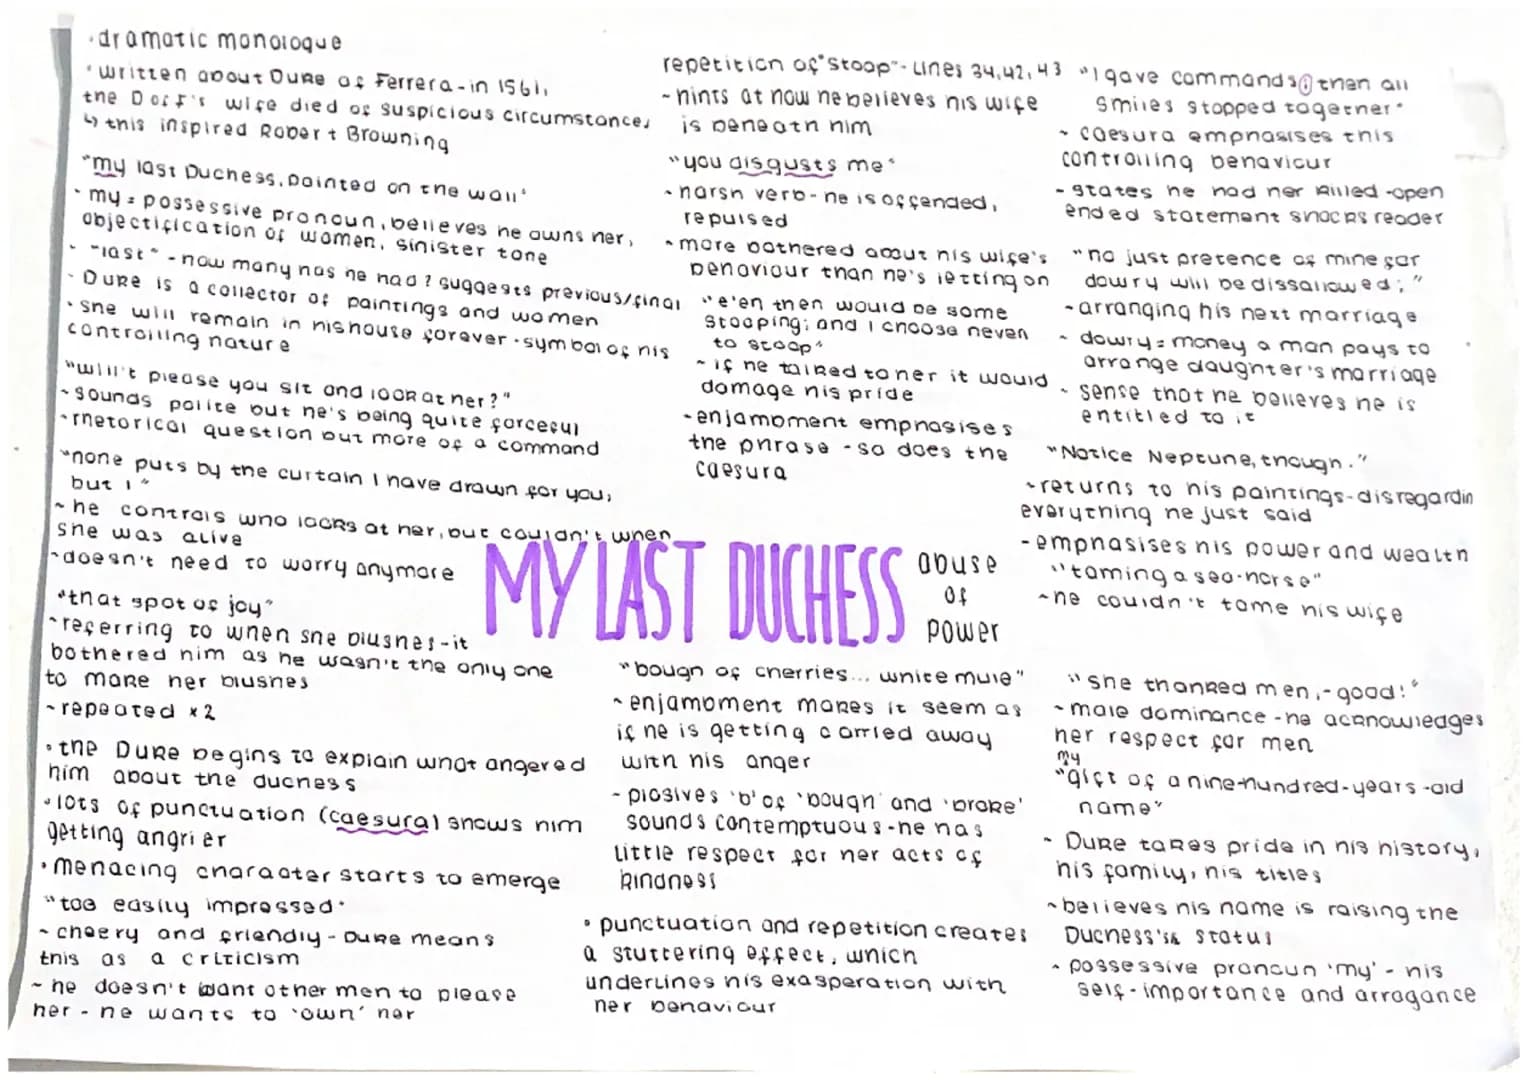 ·dramatic monologue
·written about Duke of Ferrera - in 1561,
the D of F's wife died of suspicious circumstances
↳ this inspired Robert Browning
"my last Duchess, painted on the wall"
· my = possessive pronoun, believes he owns her,
objectification of women, sinister tone
· "last" - how many has he had? suggests previous/final
· Duke is a collector of paintings and women
· she will remain in his house forever - symbol of his
controlling nature
"will't please you sit and look at her?"
~ sounds polite but he's being quite forceful
~ rhetorical question but more of a command
"none puts by the curtain I have drawn for you,
but I"
~ he controls who looks at her, but couldn't when
she was alive
~ doesn't need to worry anymore
"that spot of joy"
~ referring to when she blushes - it
bothered him as he wasn't the only one
to make her blushes
~ repeated x2
· the Duke begins to explain what angered
him about the duchess
· lots of punctuation (caesura) shows him
getting angrier
· menacing character starts to emerge
"too easily impressed"
~ cheery and friendly - Duke means
this as a criticism
~ he doesn't want other men to please
her - he wants to 'own' her
repetition of "stoop" - Lines 34,42,43
~ hints at how he believes his wife
is beneath him
"you disgusts me"
~ harsh verb - he is offended,
repulsed
~ more bothered about his wife's
behaviour than he's letting on
"e'en then would be some
stooping; and I choose never
to stoop"
~ if he talked to her it would
damage his pride
~ enjambment emphasises
the phrase - so does the
caesura
MY LAST DUCHESS
abuse
of
power
"bough of cherries... white mule"
~ enjambment makes it seem as
if he is getting carried away
with his anger
~ plosives 'b' of 'bough' and 'broke'
sounds contemptuous - he has
little respect for her acts of
kindness
· punctuation and repetition creates
a stuttering effect, which
underlines his exasperation with
her behaviour
"I gave commands; then all
smiles stopped together"
~ caesura emphasises this
controlling behaviour
~ states he had her killed - open
ended statement shocks reader
"no just pretence of mine for
dowry will be dissallowed;"
~ arranging his next marriage
~ dowry = money a man pays to
arrange daughter's marriage
~ sense that he believes he is
entitled to it
"Notice Neptune, though."
~ returns to his paintings - disregardin
everything he just said
~ emphasises his power and wealth
"taming a sea-horse"
~ he couldn't tame his wife
"she thanked men, - good!"
~ male dominance - he acknowledges
her respect for men
my
"gift of a nine-hundred-years-old
name"
~ Duke takes pride in his history,
his family, his titles
~ believes his name is raising the
Duchess's status
~ possessive pronoun 'my' - his
self-importance and arrogance